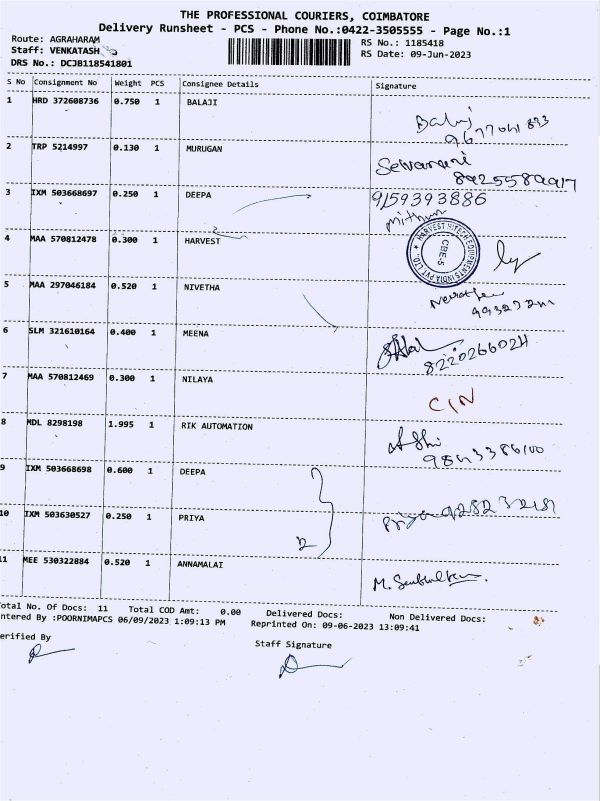 THE PROFESSIONAL COURIERS, COIMBATORE
Delivery Runsheet - PCS - Phone No.:0422-3505555 - Page No.:1
Route: AGRAHARAM
Staff: VENKATASH
DRS No.: DCJB118541801
RS No.: 1185418
RS Date: 09-Jun-2023
S No Consignment No Weight PCS Consignee Details Signature
1 HRD 372608736 0.750 1 BALAJI
Balaji
2 TRP 5214997 0.130 1 MURUGAN
8925589917
3 IXM 503668697 0.250 1 DEEPA 9159393886
mithun
4 MAA 570812478 0.300 1 HARVEST
HARVEST HITECH EQUIPMENTS INDIA PVT LTD
CBE-5
5 MAA 297046184 0.520 1 NIVETHA
6 SLM 321610164 0.400 1 MEENA
8220266024
7 MAA 570812469 0.300 1 NILAYA
C/N
8 MDL 8298198 1.995 1 RIK AUTOMATION
9 IXM 503668698 0.600 1 DEEPA
10 IXM 503630527 0.250 1 PRIYA
Priya
11 MEE 530322884 0.520 1 ANNAMALAI
otal No. Of Docs: 11 Total COD Amt: 0.00 Delivered Docs: Non Delivered Docs:
ntered By :POORNIMAPCS 06/09/2023 1:09:13 PM Reprinted On: 09-06-2023 13:09:41
erified By
Staff Signature